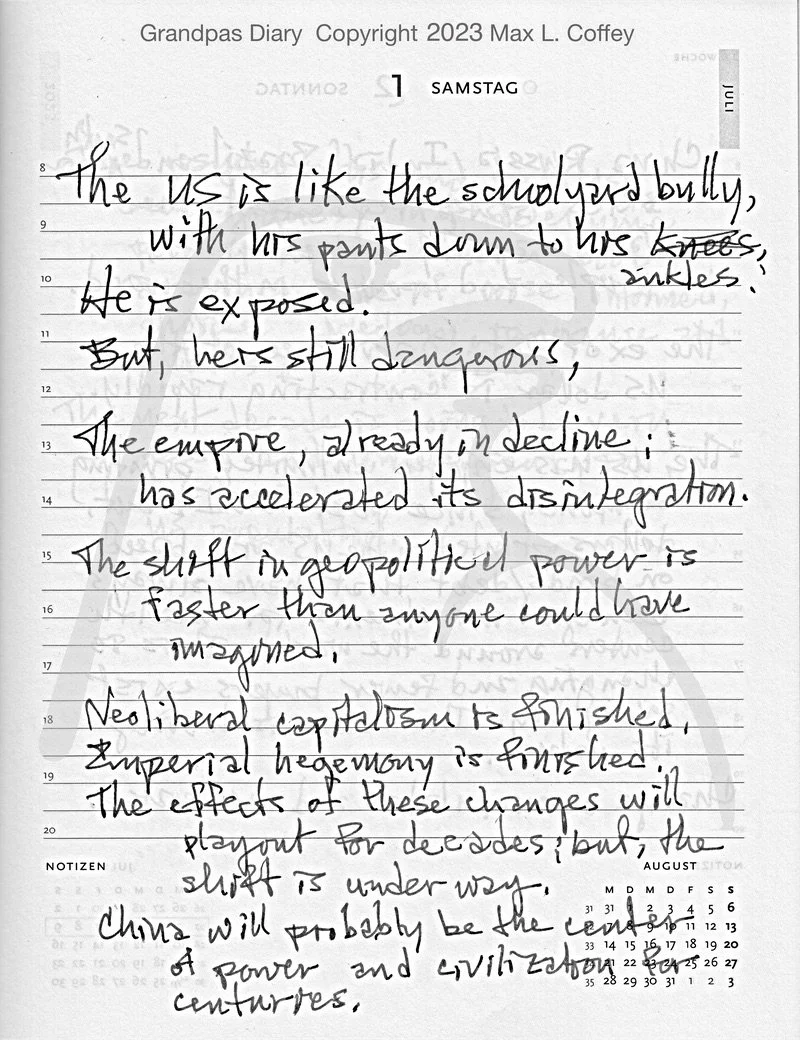 Grandpas Diary Copyright 2023 Max L. Coffey
1 SAMSTAG
JULI
8
The US is like the schoolyard bully,
9
with his pants down to his knees,
ankles.
10
He is exposed.
11
But, he is still dangerous,
12
13
The empire, already in decline;
14
has accelerated its disintegration.
15
The shift in geopolitical power is
16
faster than anyone could have
imagined.
17
18
Neoliberal capitalism is finished.
Imperial hegemony is finished.
19
The effects of these changes will
20
playout for decades; but, the
NOTIZEN
AUGUST
shift is under way.
China will probably be the center
of power and civilization for
centuries.
M D M D F S S
31 31 1 2 3 4 5 6
8 9 10 11 12 13
33 14 15 16 17 18 19 20
21 22 23 24 25 26 27
35 28 29 30 31 1 2 3